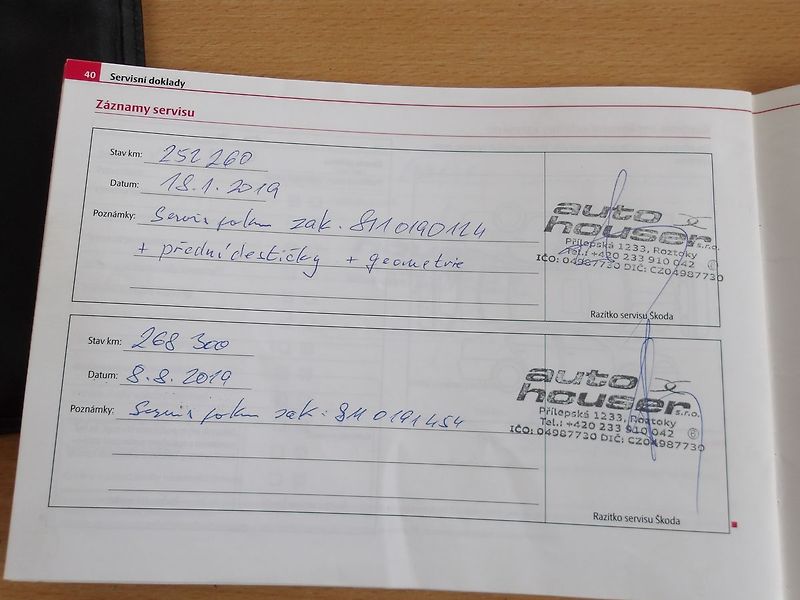 40 Servisní doklady
Záznamy servisu
Stav km: 252 260
Datum: 18.1.2019
Poznámky: Servis zak. 8110190124
+ přední destičky + geometrie
auto
houser s.r.o.
Přílepská 1233, Roztoky
Tel.: +420 233 910 042
IČO: 04987730 DIČ: CZ04987730
Razítko servisu Škoda
Stav km: 268 300
Datum: 8.8.2019
Poznámky: Servis zak. 8110191454
auto
houser s.r.o.
Přílepská 1233, Roztoky
Tel.: +420 233 910 042
IČO: 04987730 DIČ: CZ04987730
Razítko servisu Škoda